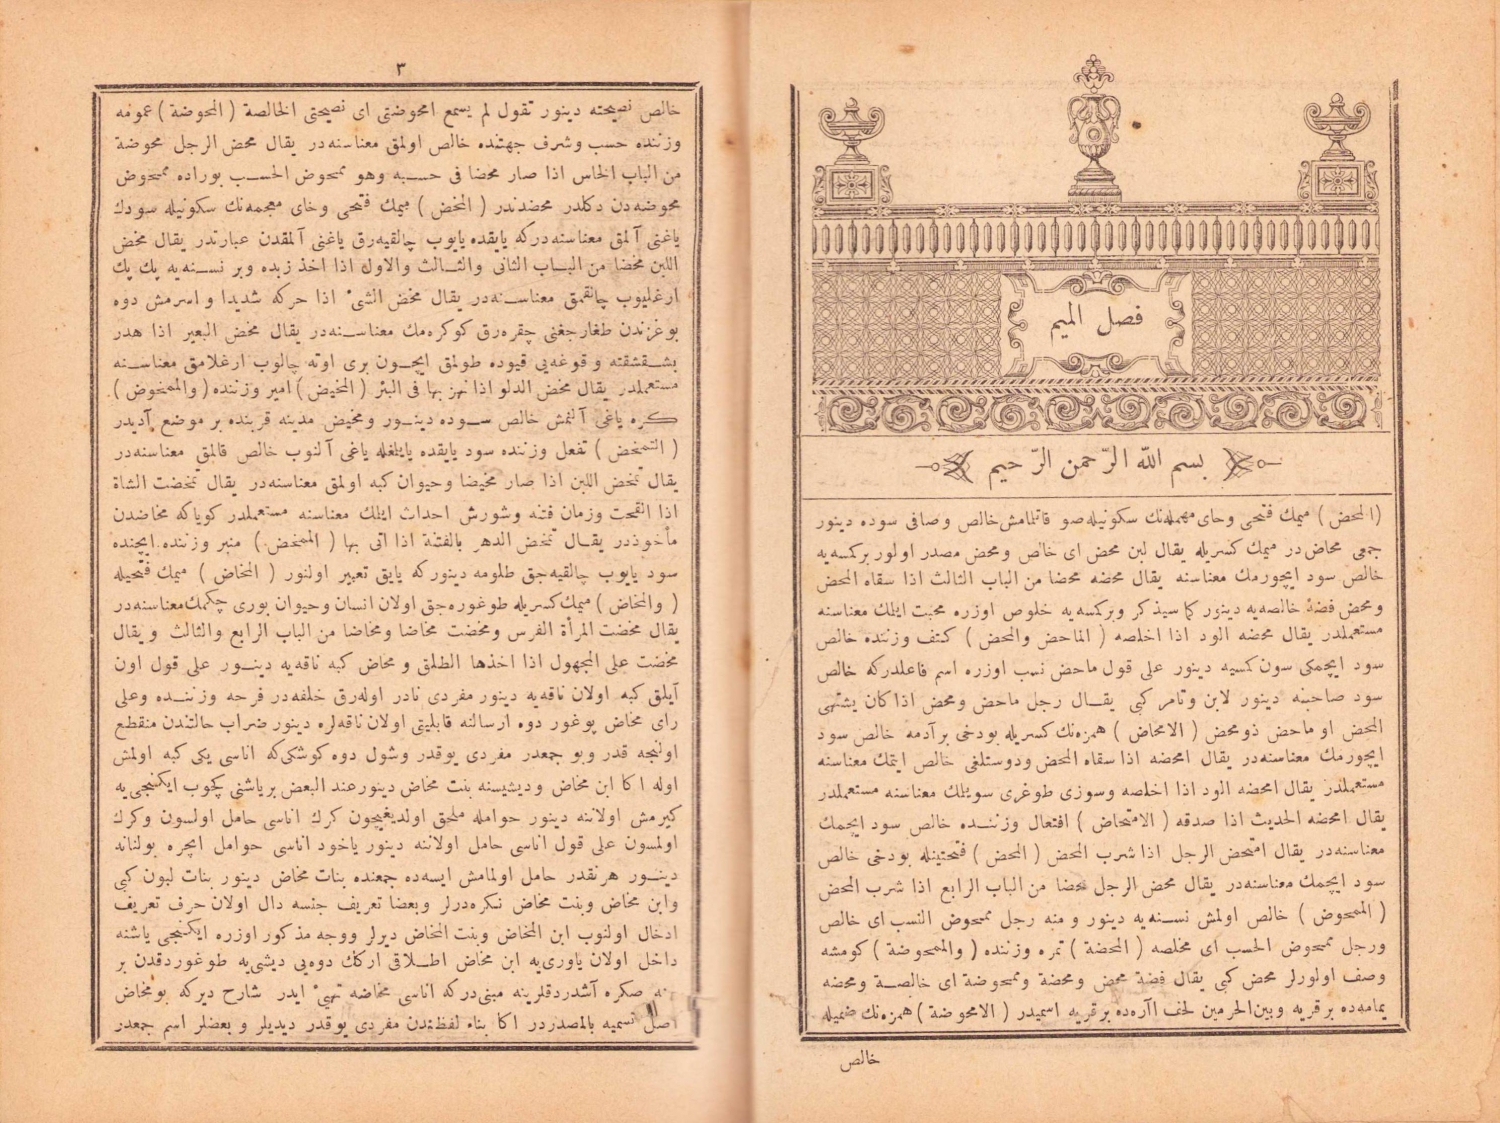 فصل الميم
بسم الله الرّحمن الرّحيم
(المحض) ميمك فتحى وحاى مهمله‌نك سكونيله صو قاتلمامش خالص وصافى سوده دينور
جمعى محاض در ميمك كسريله يقال لبن محض اى خالص ومحض مصدر اولور بركمسه‌يه
خالص سود ايچورمك معناسنه يقال محضه محضا من الباب الثالث اذا سقاه المحض
ومحض فضهٔ خالصه‌يه دينور كما سيذكر وبركمسه‌يه خلوص اوزره محبت ايلمك معناسنه
مستعملدر يقال محضه الود اذا اخلصه (الماحض والمحض) كتف وزننده خالص
سود ايچمكى سون كمسيه دينور على قول ماحض نسب اوزره اسم فاعلدركه خالص
سود صاحبنه دينور لابن وتامر كبى يقال رجل ماحض ومحض اذا كان يشتهى
المحض او ماحض ذو محض (الامحاض) همزه‌نك كسريله بودخى برآدمه خالص سود
ايچورمك معناسنه‌در يقال امحضه اذا سقاه المحض ودوستلغى خالص ايتمك معناسنه
مستعملدر يقال امحضه الود اذا اخلصه وسوزى طوغرى سويلمك معناسنه مستعملدر
يقال امحضه الحديث اذا صدقه (الامتحاض) افتعال وزننده خالص سود ايچمك
معناسنه‌در يقال امتحض الرجل اذا شرب المحض (المحض) فتحتينله بودخى خالص
سود ايچمك معناسنه‌در يقال محض الرجل محضا من الباب الرابع اذا شرب المحض
(الممحوض) خالص اولمش نسنه‌يه دينور و منه رجل ممحوض النسب اى خالص
ورجل ممحوض الحسب اى مخلصه (المحضة) تمره وزننده (والممحوضة) كومشه
وصف اولورلر محض كبى يقال فضة محض ومحضة وممحوضة اى خالصة ومحضه
يمامه‌ده بر قريه و بين الحرمين لحف آاره‌ده بر قريه اسميدر (الامحوضة) همزه‌نك ضميله
خالص
٣
خالص نصيحته دينور تقول لم يسمع امحوضتى اى نصيحتى الخالصة (المحوضة) عمومه
وزننده حسب وشرف جهتنده خالص اولمق معناسنه‌در يقال محض الرجل محوضة
من الباب الخامس اذا صار محضا فى حسبه وهو ممحوض الحسب بوراده ممحوض
محوضه‌دن دكلدر محضدندر (المخض) ميمك فتحى وخاى معجمه‌نك سكونيله سودك
ياغنى آلمق معناسنه‌دركه يايقده يايوب چالقيه‌رق ياغنى آلمقدن عبارتدر يقال مخض
اللبن مخضا من الباب الثانى والثالث والاول اذا اخذ زبده وبر نسنه‌يه پك پك
ارغليوب چالقمق معناسنه‌در يقال مخض الشئ اذا حركه شديدا و اسرمش دوه
بوغزندن طغارجغنى چقره‌رق كوكره‌مك معناسنه‌در يقال مخض البعير اذا هدر
بشقشقته و قوغه‌يى قيوده طولمق ايچون برى اوته چالوب ارغلامق معناسنه
مستعملدر يقال مخض الدلو اذا نهز بها فى البئر (المخيض) امير وزننده (والممخوض)
كره ياغى آلنمش خالص سوده دينور ومخيض مدينه قربنده بر موضع آديدر
(التمخض) تفعل وزننده سود يايقده يايلمغله ياغى آلنوب خالص قالمق معناسنه‌در
يقال تمخض اللبن اذا صار مخيضا وحيوان كبه اولمق معناسنه‌در يقال تمخضت الشاة
اذا القحت وزمان فتنه وشورش احداث ايلمك معناسنه مستعملدر كوياكه مخاضدن
مأخوذدر يقال تمخض الدهر بالفتنة اذا اتى بها (الممخض) منبر وزننده ايچنده
سود يايوب چالقيه‌جق طلومه دينوركه يايق تعبير اولنور (المخاض) ميمك فتحيله
(والمخاض) ميمك كسريله طوغوره‌جق اولان انسان وحيوان بورى چكمك معناسنه‌در
يقال مخضت المرأة الفرس ومخضت مخاضا ومخاضا من الباب الرابع والثالث و يقال
مخضت على المجهول اذا اخذها الطلق و مخاض كبه ناقه‌يه دينور على قول اون
آيلق كبه اولان ناقه‌يه دينور مفردى نادر اوله‌رق خلفه‌در فرحه وزننده وعلى
راى مخاض پوغور دوه ارسالنه قابليتى اولان ناقه‌لره دينور ضراب حالتندن منقطع
اولنجه قدر وبو جمعدر مفردى يوقدر وشول دوه كوشكى‌كه اناسى يكى كبه اولمش
اوله اكا ابن مخاض وديشيسنه بنت مخاض دينور عند البعض بر ياشنى كچوب ايكنجى‌يه
كيرمش اولاننه دينور حوامله ملحق اولديغيچون كرك اناسى حامل اولسون وكرك
اولمسون على قول اناسى حامل اولاننه دينور ياخود اناسى حوامل ايچره بولنانه
دينور هرنقدر حامل اولمامش ايسه‌ده جمعنده بنات مخاض دينور بنات لبون كبى
وابن مخاض وبنت مخاض نكره‌درلر وبعضا تعريف جنسه دال اولان حرف تعريف
ادخال اولنوب ابن المخاض وبنت المخاض ديرلر ووجه مذكور اوزره ايكنجى ياشنه
داخل اولان ياورى‌يه ابن مخاض اطلاقى اركك دوه‌يى ديشى‌يه طوغوردقدن بر
صكره آشدردقلرينه مبنى‌دركه اناسى مخاضه تهيئ ايدر شارح ديركه بو مخاض
اصل تسميه بالمصدردر اكا بناء لفظندن مفردى يوقدر ديديلر و بعضلر اسم جمعدر